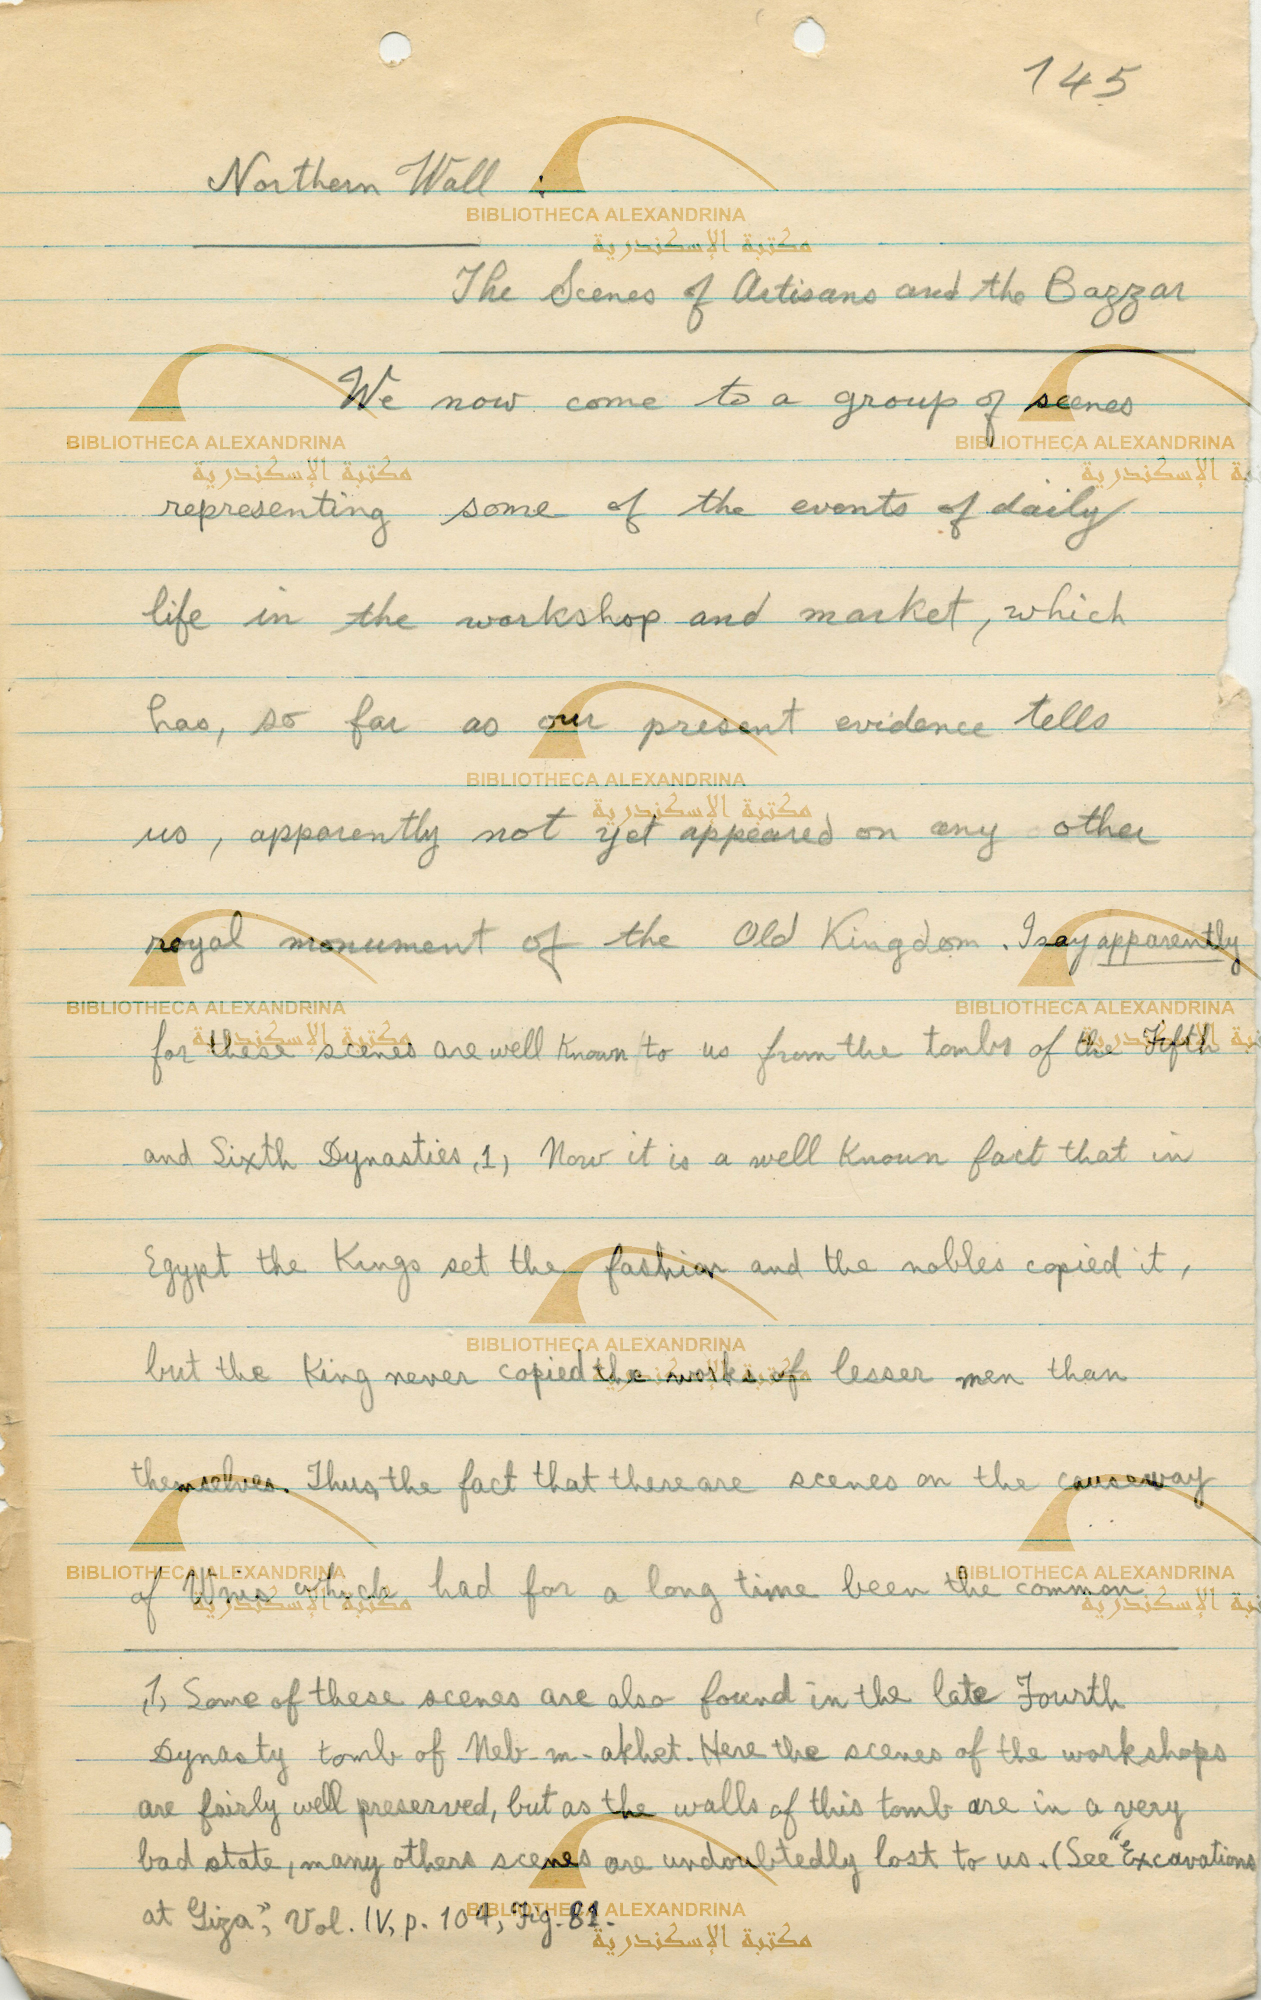 145
Northern Wall :
The Scenes of Artisans and the Bazzar
We now come to a group of scenes
representing some of the events of daily
life in the workshop and market, which
has, so far as our present evidence tells
us, apparently not yet appeared on any other
royal monument of the Old Kingdom. I say apparently
for these scenes are well known to us from the tombs of the Fifth
and Sixth Dynasties ,1, Now it is a well known fact that in
Egypt the Kings set the fashion and the nobles copied it,
but the King never copied the works of lesser men than
themselves. Thus, the fact that there are scenes on the causeway
of Wnis which had for a long time been the common
,1, Some of these scenes are also found in the late Fourth
Dynasty tomb of Neb-m-akhet. Here the scenes of the workshops
are fairly well preserved, but as the walls of this tomb are in a very
bad state, many others scenes are undoubtedly lost to us. (See "Excavations
at Giza", Vol. IV, p. 104, Fig. 81.
BIBLIOTHECA ALEXANDRINA
مكتبة الإسكندرية